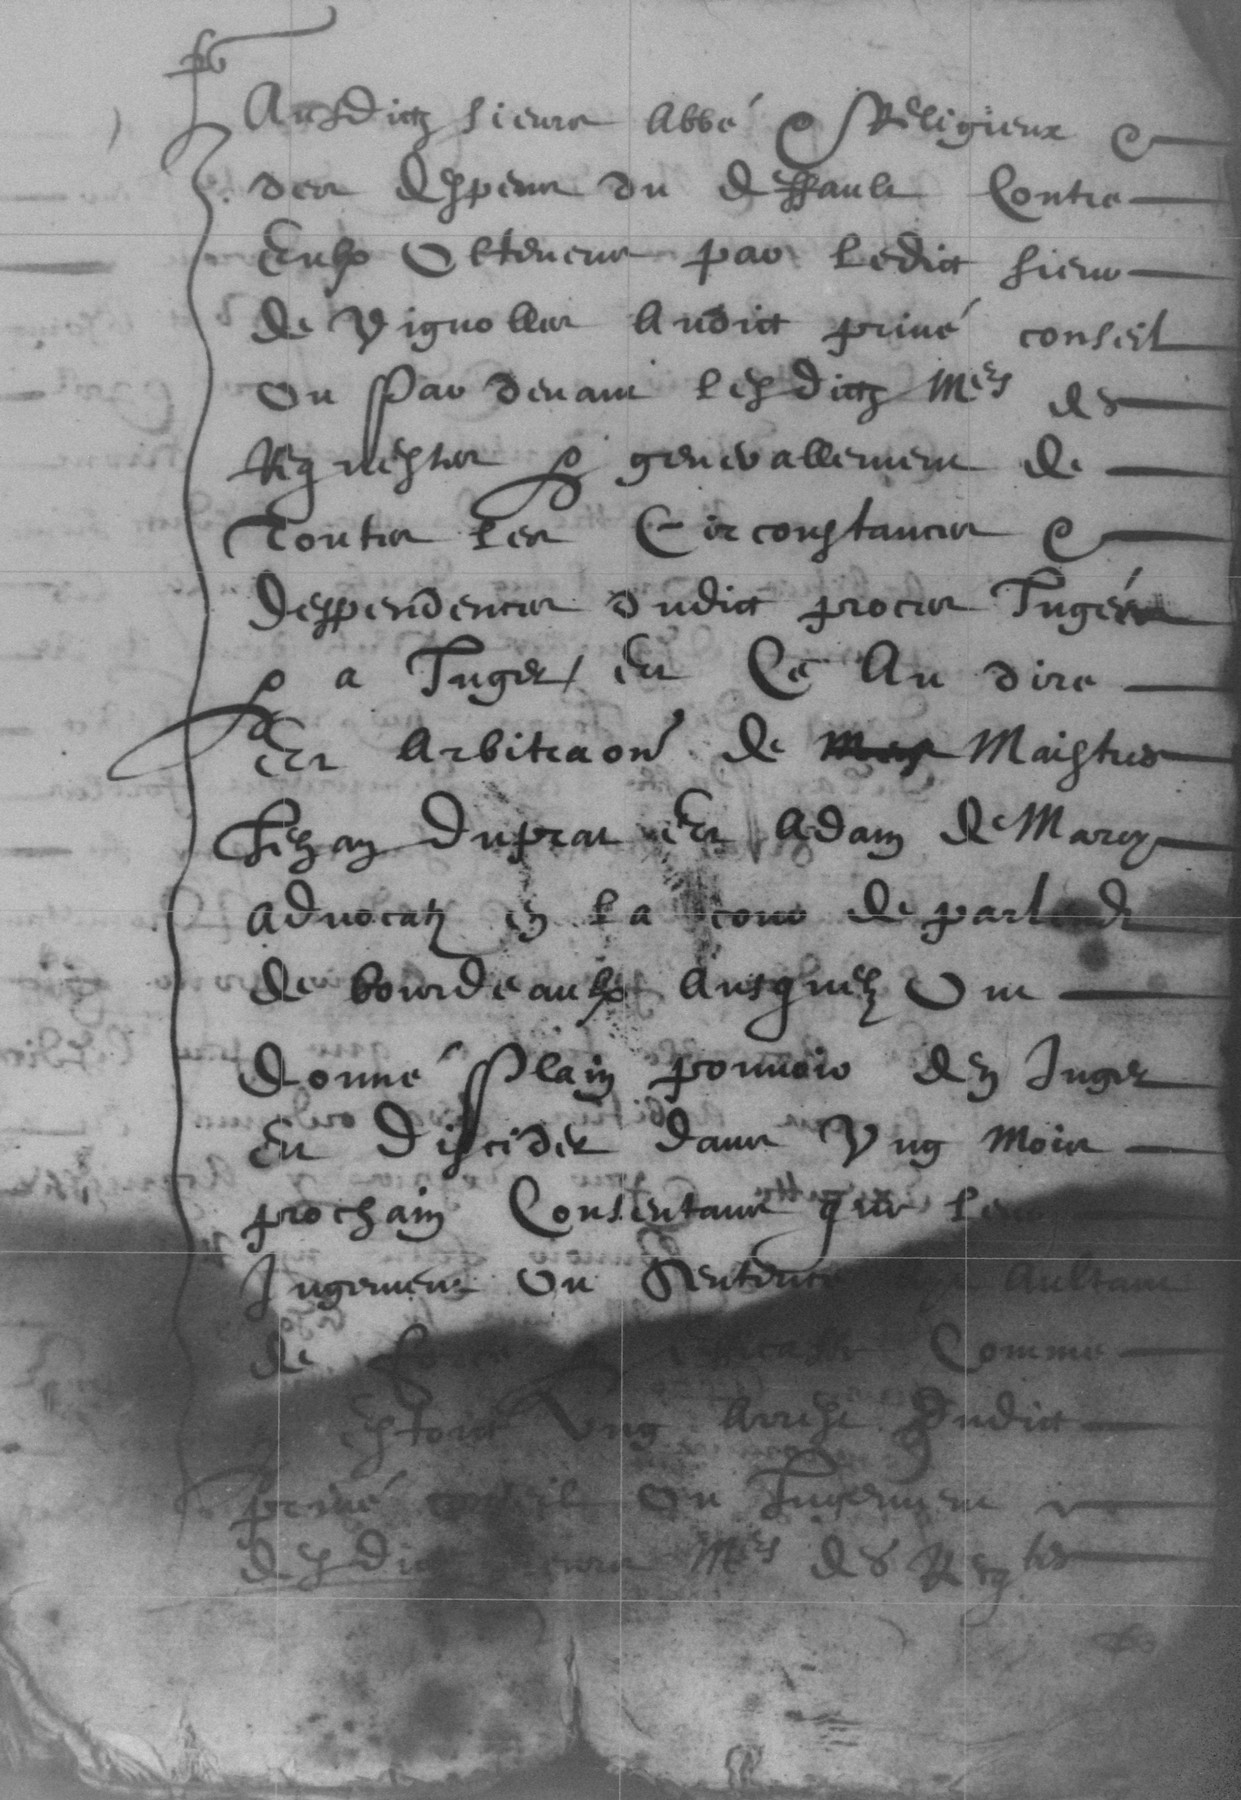 Ausdictz sieurs Abbé & Religieux &
des despens du deffault Contre
Eulx Obtenus par ledict sieur
de Vignolles Audict privé conseil
ou Par devant lesdictz Mers des
Requestes & generallement de
Toutes les Circonstances &
Despendences dudict proces Jugées
& a Juger / En Ce Au dire
Et Arbitraon de Maistres
Jehan Duprat Et Adam de Marcy
advocatz en la cour de parl de
de bourdeaulx Ausquelz Ont
donné Plain pouvoir den Juger
Et Discider dans Ung Mois
prochain Consentans que leur
Jugement ou Sentence aultant
de force Comme
estoict Ung Arrest Dudict
privé conseil ou Jugement
desdictz sieurs Mers des Reqtes